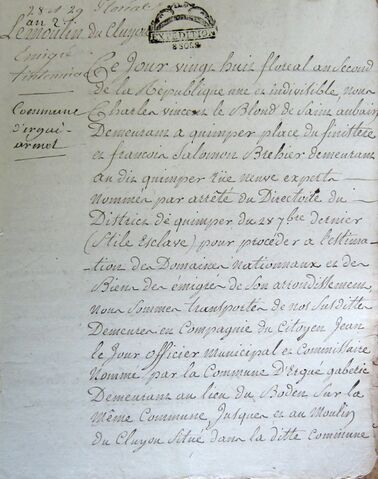 28 et 29 floreal
an 2e
Le moulin du Cluyou
Emigré
EXPEDITION
8 SOLS
Commune
d'ergué-
armel
Ce Jour vingt huit floreal an Second
de la Republique une et indivisible, nous
Charles vincent le Blond de Saint aubain,
Demeurant a quimper place du finistere
et françois Salomon Brehier demeurant
au dit quimper Rüe neuve experts
nommés par arrêté du Directoire du
District de quimper du 28 7bre dernier
(Stile Esclave) pour procéder a l'estima-
tion des Domaines Nationnaux et des
Biens des émigrés de Son arrondissement,
nous Sommes transportés de nos Susdittes
Demeures en Compagnie du Citoyen Jean
le Jour officier municipal et Commissaire
nommé par la Commune d'Ergue gaberic
Demeurant au lieu du Boden Sur la
même Commune Jusques et au Moulin
du Cluyou Situé dans la ditte Commune